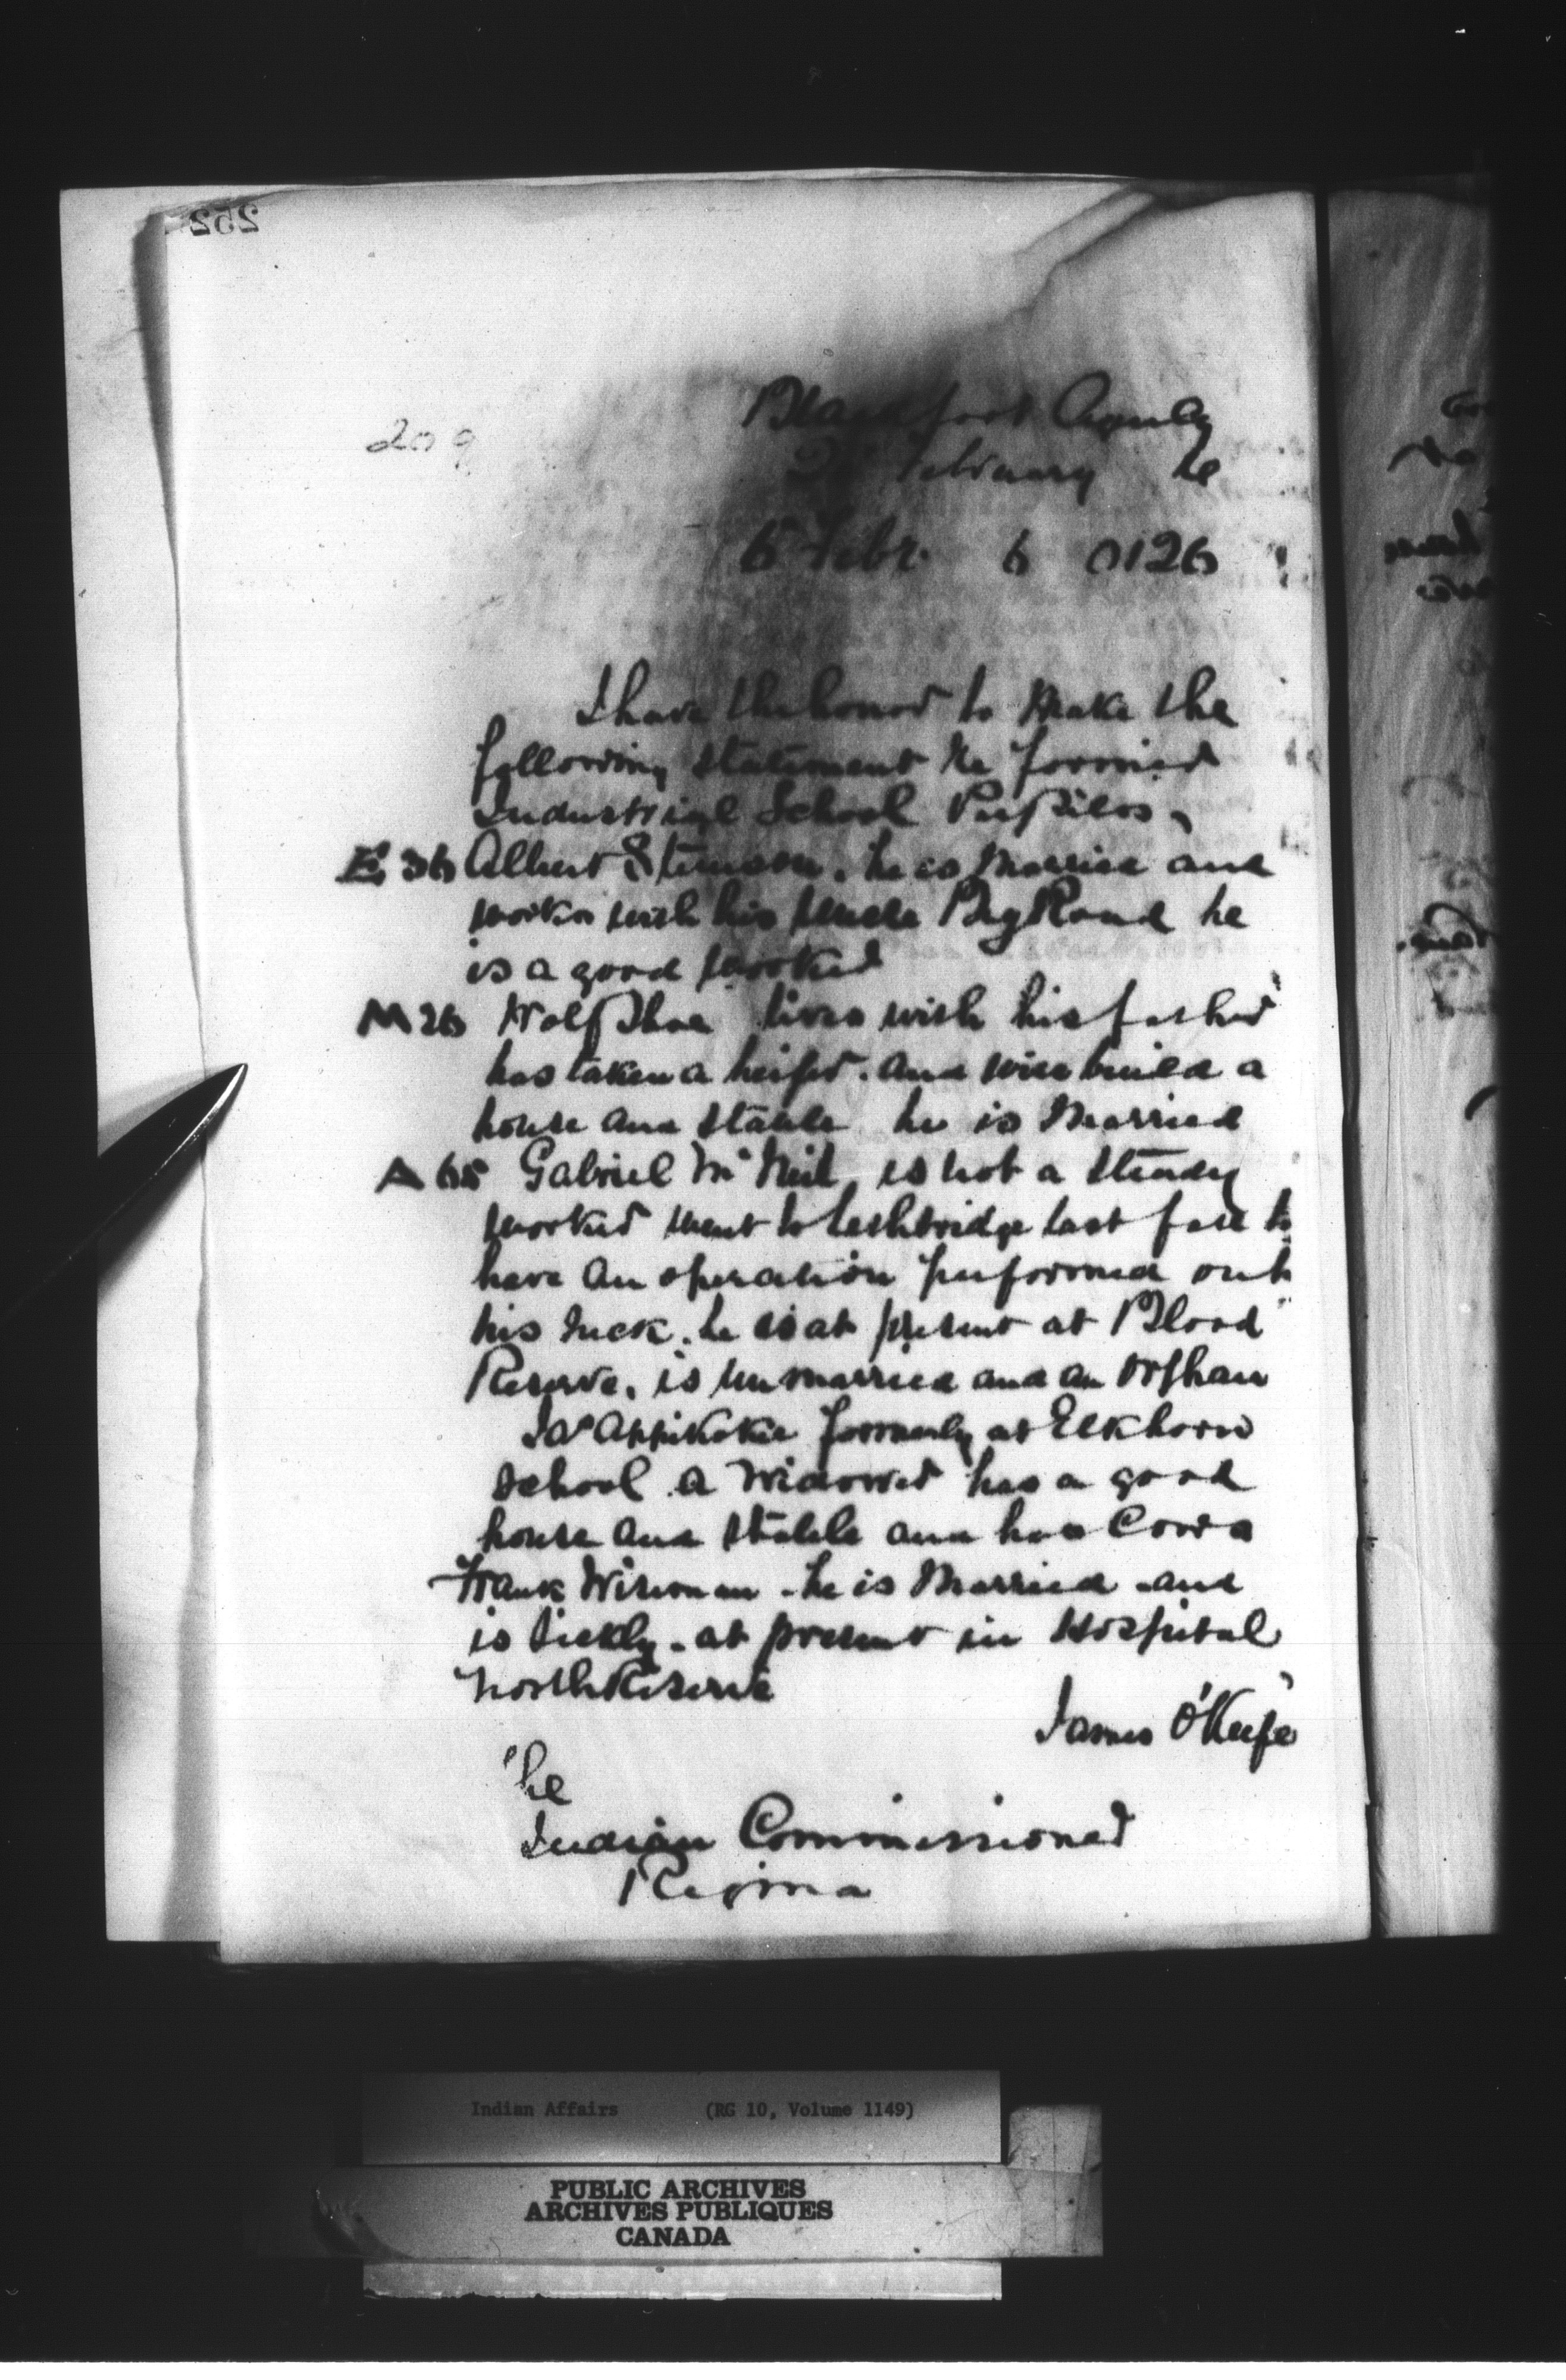 252
209
Blackfoot Agency
February
6 Febr. 6 0126
I have the honor to make the
following statement re former
Industrial School Pupils,
E 36 Albert he is Married and
works with his Uncle Big Road he
is a good worker
M 26 Wolf Shoe lives with his father
has taken a heifer. and will build a
house and stable he is Married
A 65 Gabriel McNeil, is not a steady
worker went to Lethbridge last fall to
have an operation performed on
his neck. he is at present at Blood
Reserve, is unmarried and an Orphan
Jas Appikokie formerly at Elkhorn
School a widower has a good
house and stable and has Cows
Frank Wiseman - he is Married - and
is sickly - at present in Hospital
North Reserve
James O'Keefe
he
Indian Commissioner
Regina
Indian Affairs (RG 10, Volume 1149)
PUBLIC ARCHIVES
ARCHIVES PUBLIQUES
CANADA